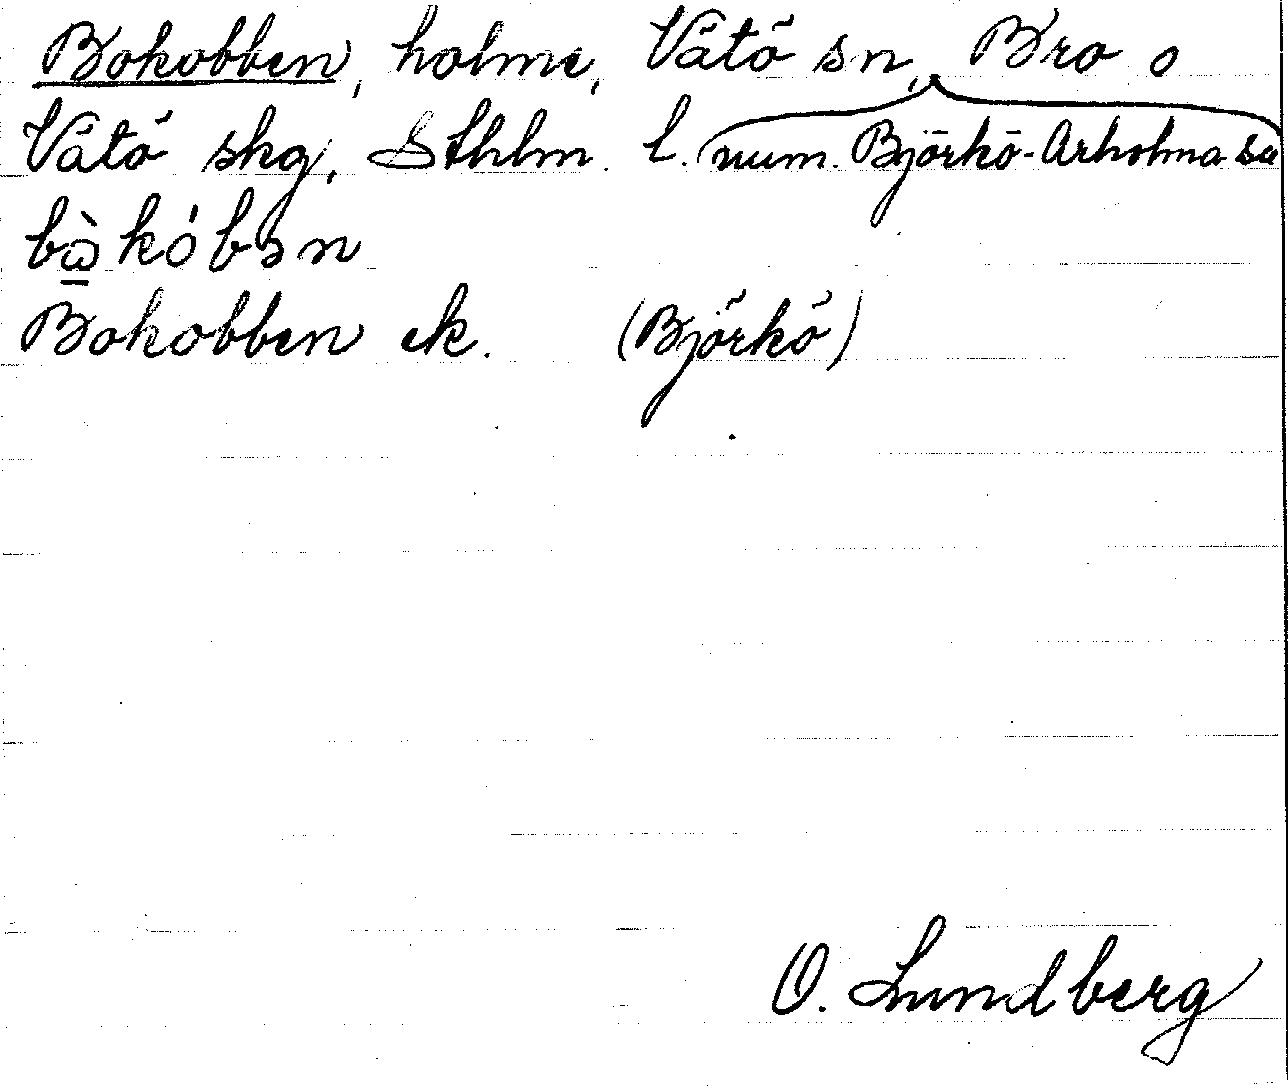 Bokobben, holme, Vätö sn, Bro o
Vätö skg, Sthlm. l. (num. Björkö-Arholma sn
bὼ̲kóbən
Bokobben ek. (Björkö)
O. Lundberg